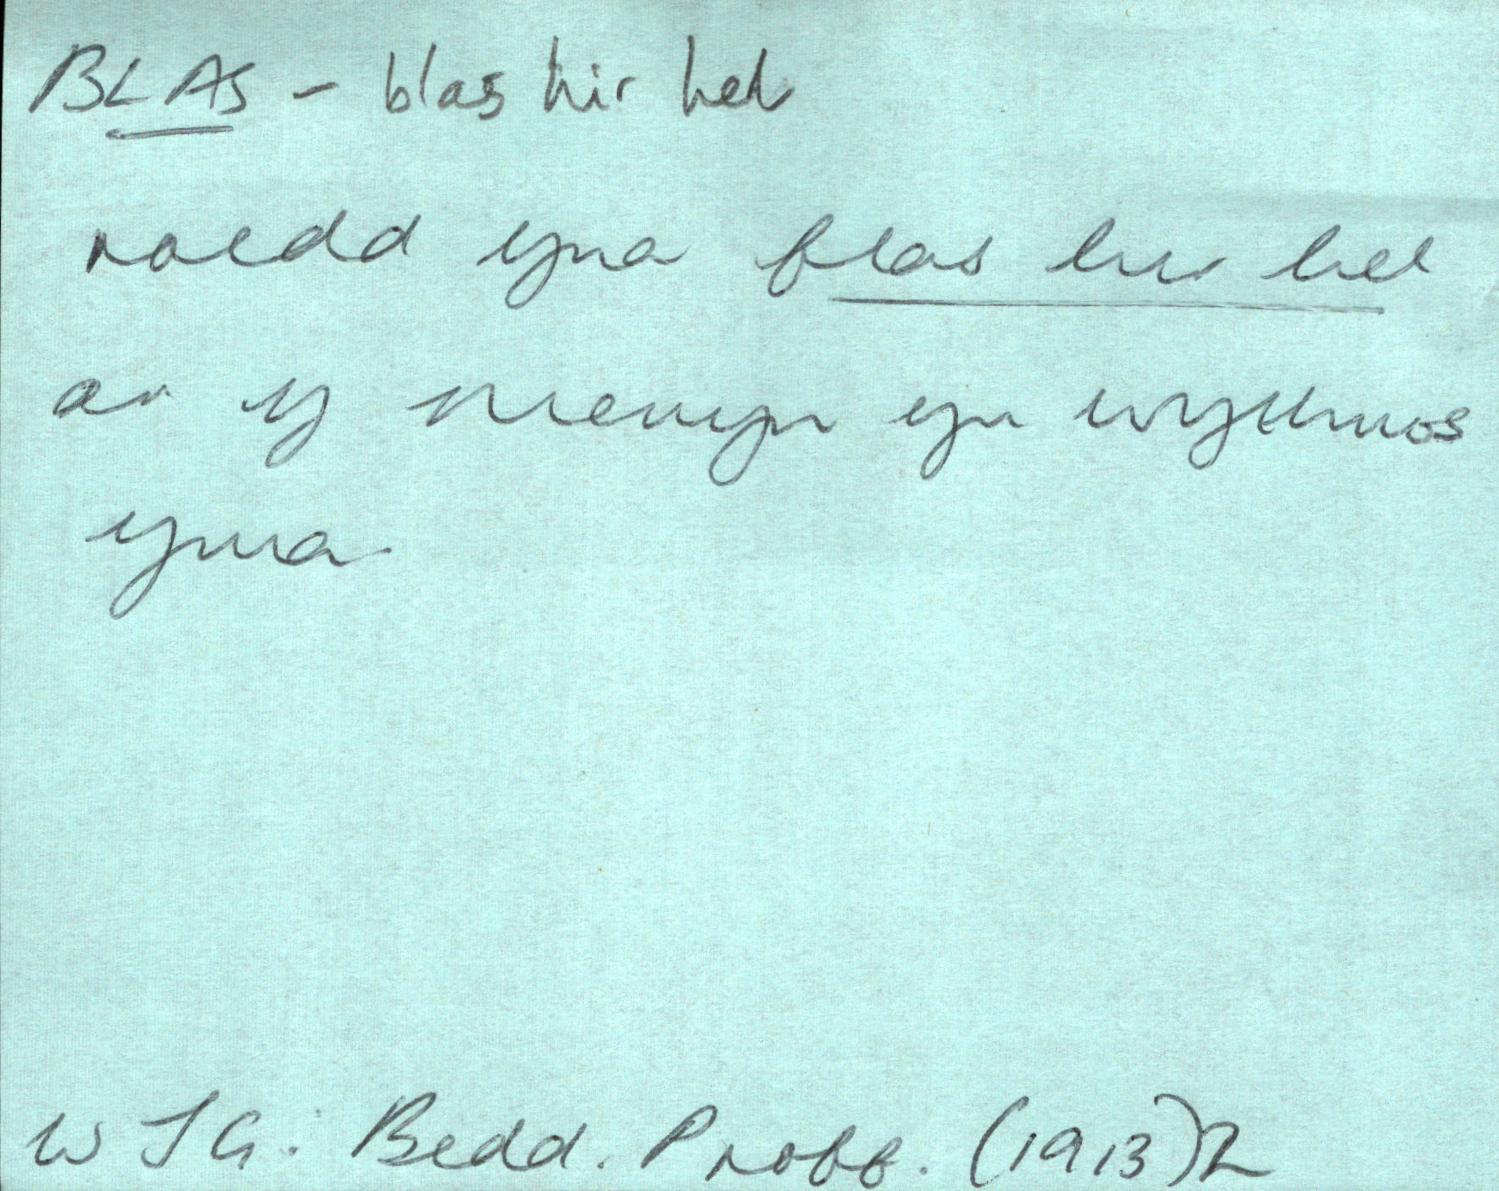 BLAS - blas hir hel
roedd yna flas hir hel
ar y menyn yr wythnos
yma
W J G. Bedd. Proff. (1913) 2